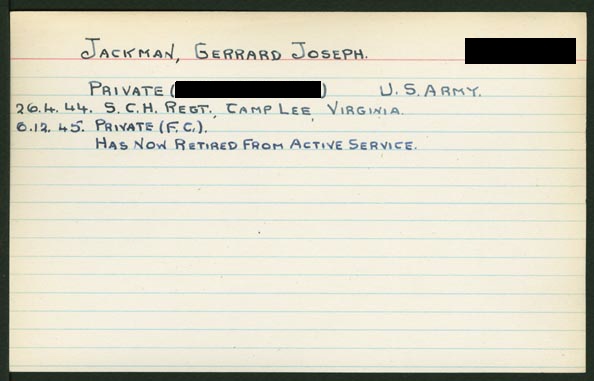 JACKMAN, GERRARD JOSEPH.
PRIVATE ( ) U.S. ARMY.
26.4.44. S.C.H. REGT., CAMP LEE, VIRGINIA.
6.12.45. PRIVATE (F.C.).
HAS NOW RETIRED FROM ACTIVE SERVICE.